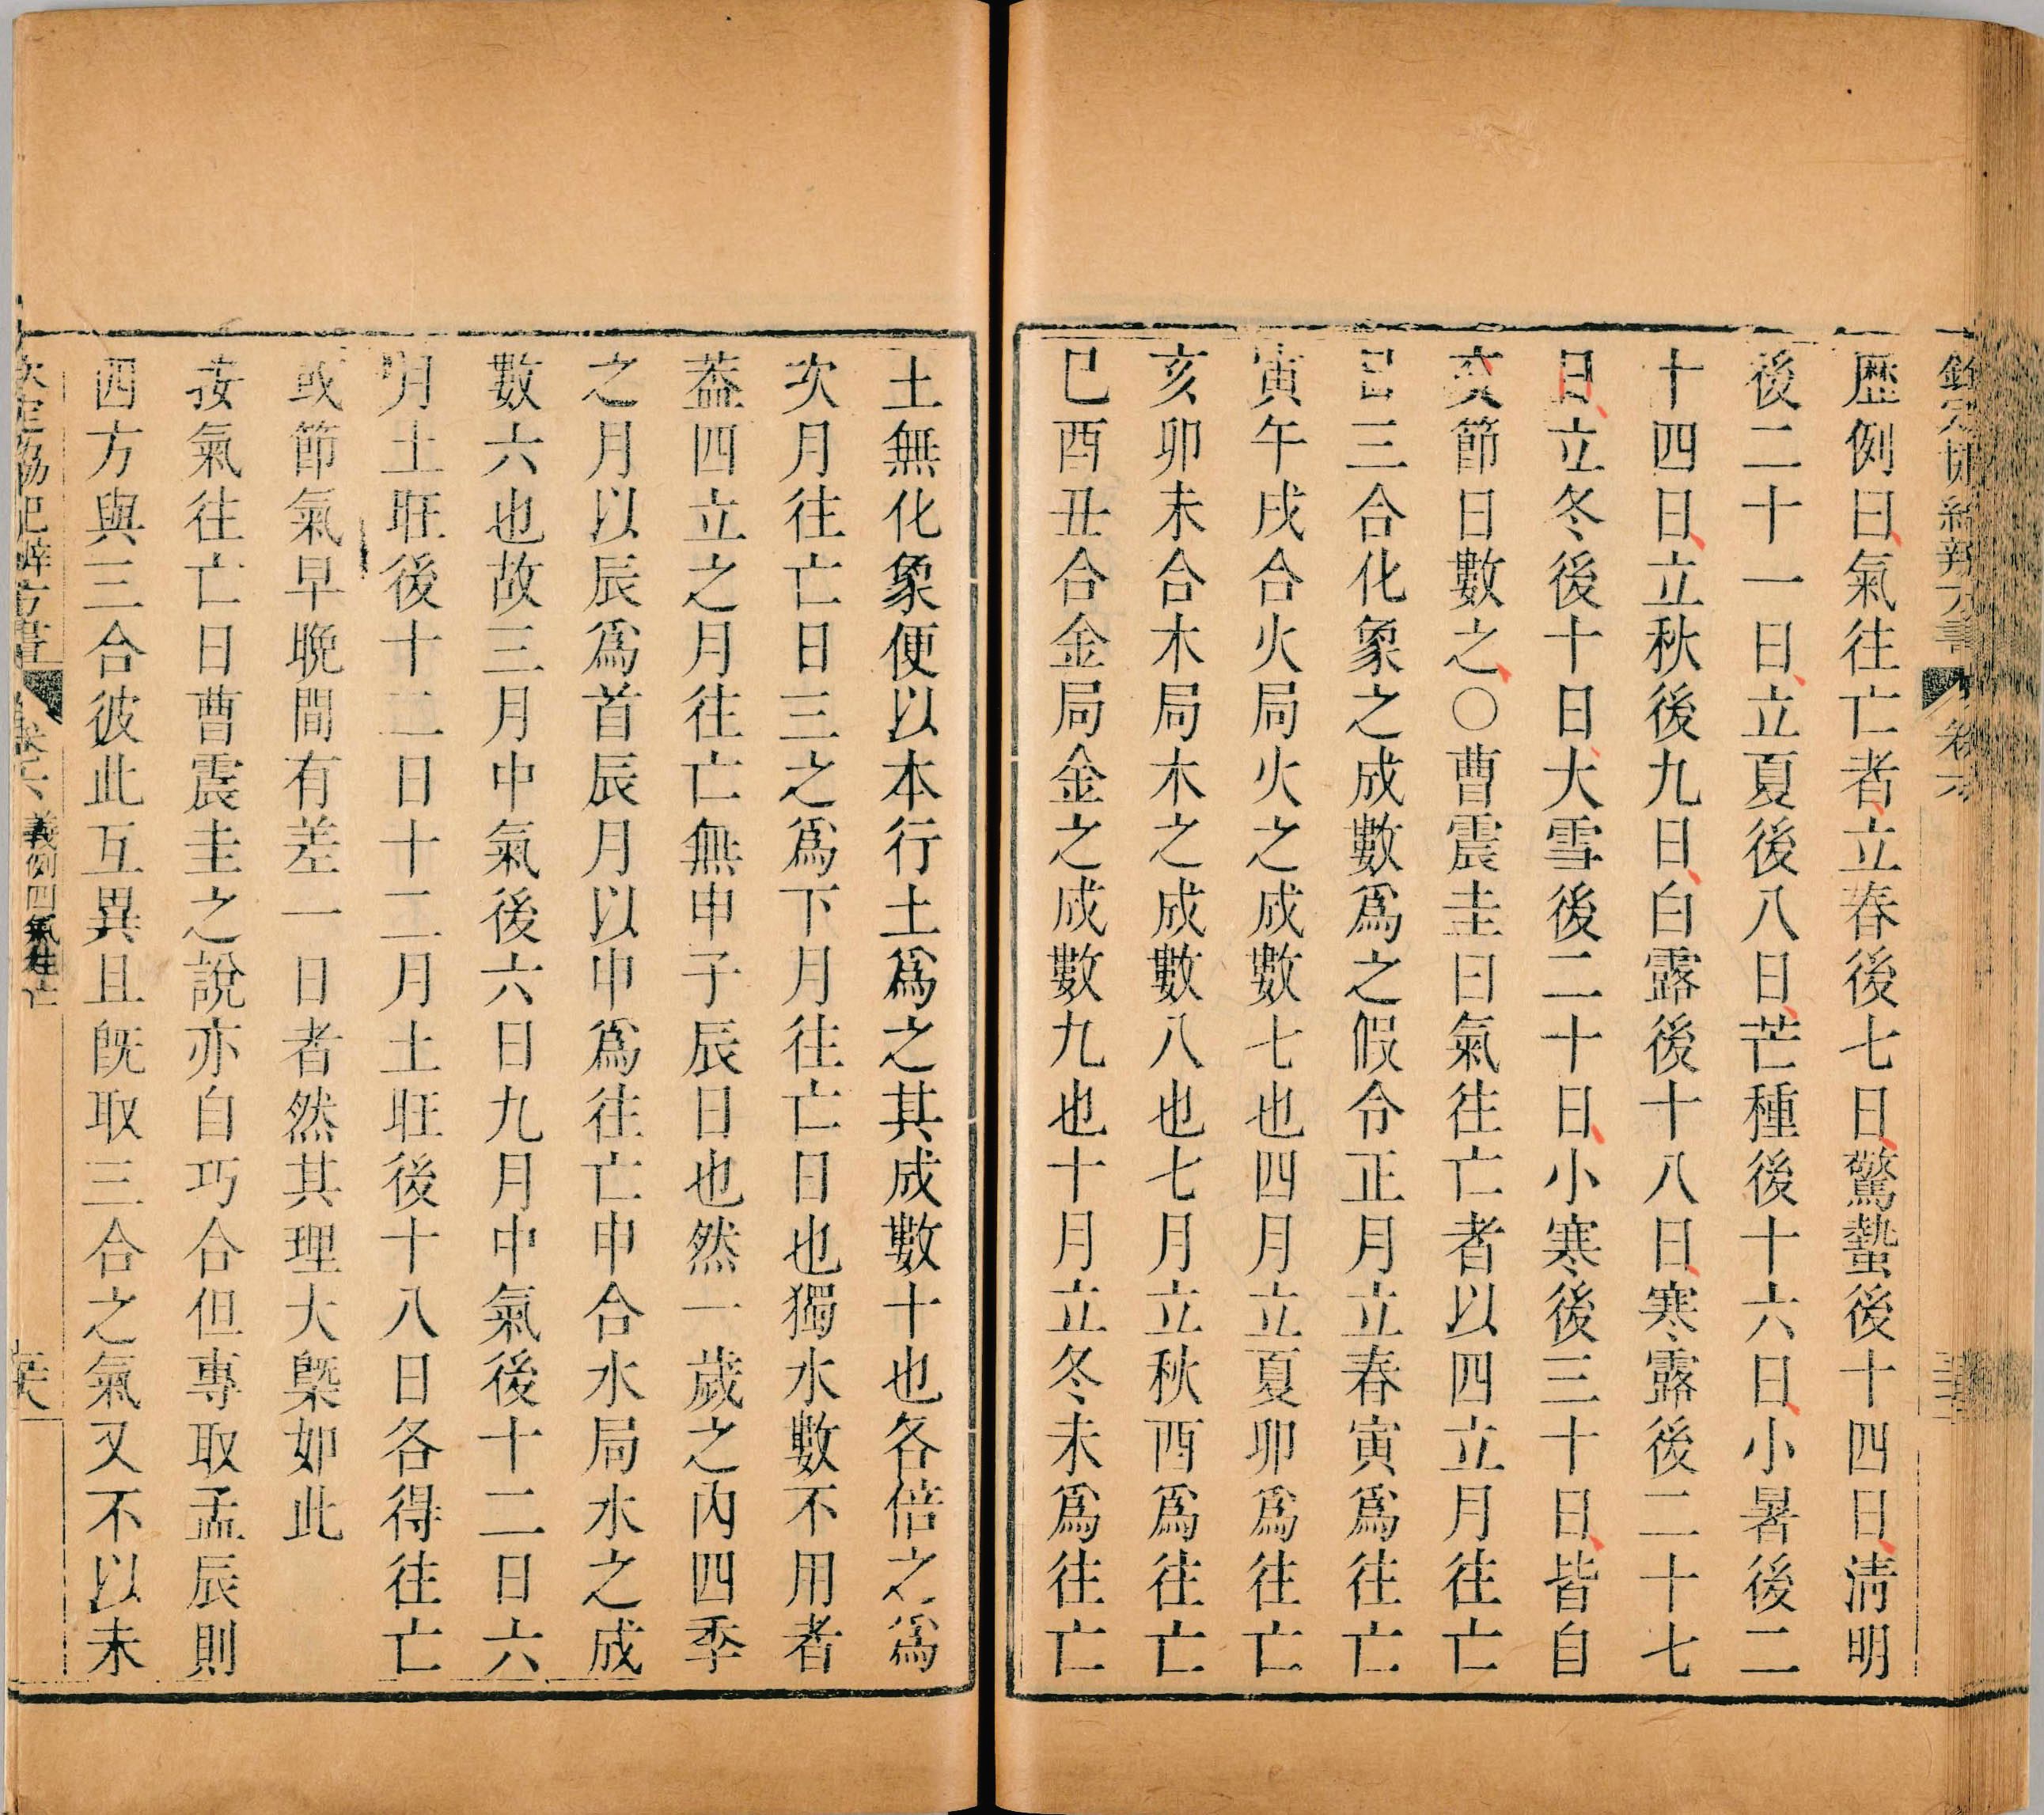 欽定協紀辨方書 卷六
歷例曰氣往亡者立春後七日驚蟄後十四日淸明
後二十一日立夏後八日芒種後十六日小暑後二
十四日立秋後九日白露後十八日寒露後二十七
日立冬後十日大雪後二十日小寒後三十日皆自
交節日數之〇曹震圭曰氣往亡者以四立月往亡
日三合化象之成數爲之假令正月立春寅爲往亡
寅午戌合火局火之成數七也四月立夏卯爲往亡
亥卯未合木局木之成數八也七月立秋酉爲往亡
巳酉丑合金局金之成數九也十月立冬未爲往亡
土無化象便以本行土爲之其成數十也各倍之爲
次月往亡日三之爲下月往亡日也獨水數不用者
葢四立之月往亡無申子辰日也然一歲之內四季
之月以辰爲首辰月以申爲往亡申合水局水之成
數六也故三月中氣後六日九月中氣後十二日六
月土旺後十二日十二月土旺後十八日各得往亡
或節氣早晩間有差一日者然其理大槩如此
按氣往亡日曹震圭之說亦自巧合但專取孟辰則
四方與三合彼此互異且旣取三合之氣又不以未
欽定協紀辨方書 卷六 義例四 氣往亡